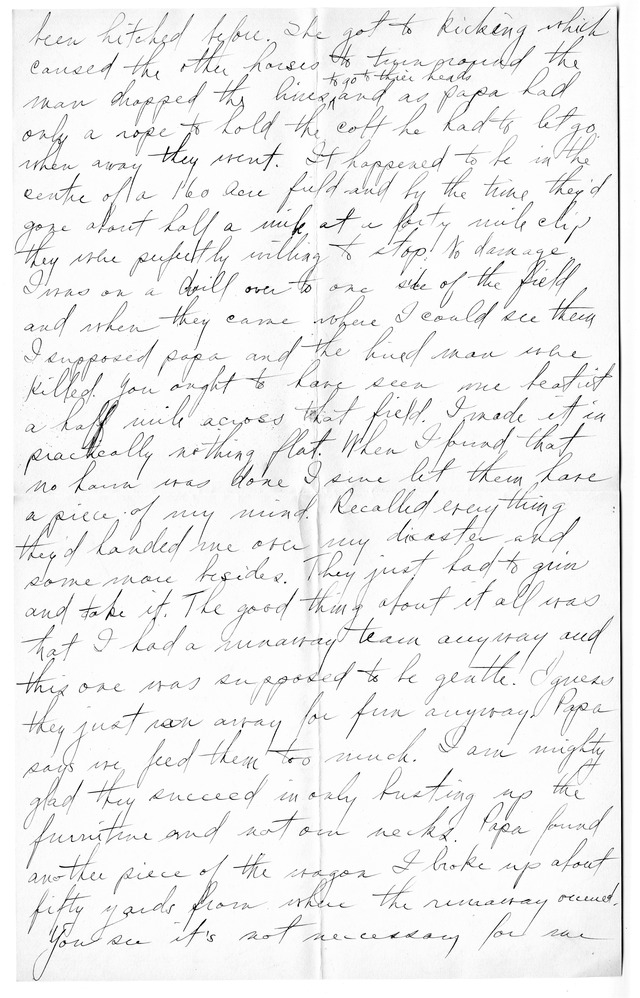 been hitched before. She got to kicking which
caused the other horses to turn around the
to go to their heads
man dropped the lines, and as papa had
only a rope to hold the colt he had to let go
when away they went. It happened to be in the
centre of a 160 acre field and by the time they'd
gone about half a mile at a forty mile clip
they were perfectly willing to stop. No damage
I was on a drill over to one side of the field
and when they came where I could see them
I supposed papa and the hired man were
killed. You ought to have seen me beat it
a half mile across that field. I made it in
practically nothing flat. When I found that
no harm was done I sure let them have
a piece of my mind. Recalled everything
they'd handed me over my disaster and
some more besides. They just had to grin
and take it. The good thing about it all was
that I had a runaway team anyway and
this one was supposed to be gentle. I guess
they just ran away for fun anyway. Papa
says we feed them too much. I am mighty
glad they succeed in only busting up the
furniture and not our necks. Papa found
another piece of the wagon I broke up about
fifty yards from where the runaway occured.
You see it's not necessary for me